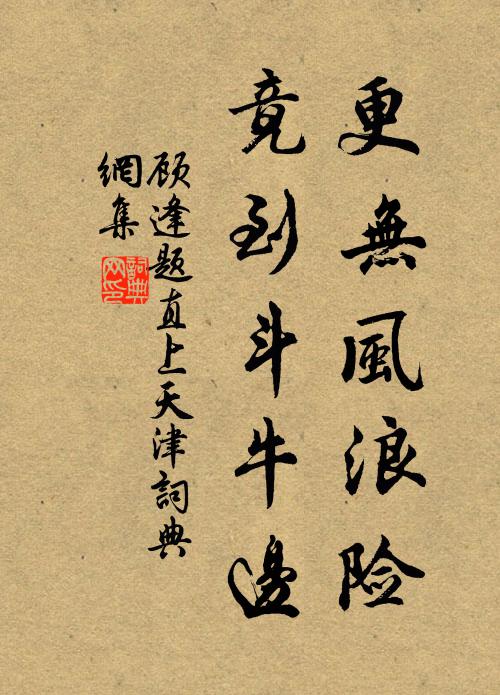 更無風浪险
竟到斗牛邊
顾逢题直上天津詞典
網集
詞典
网印